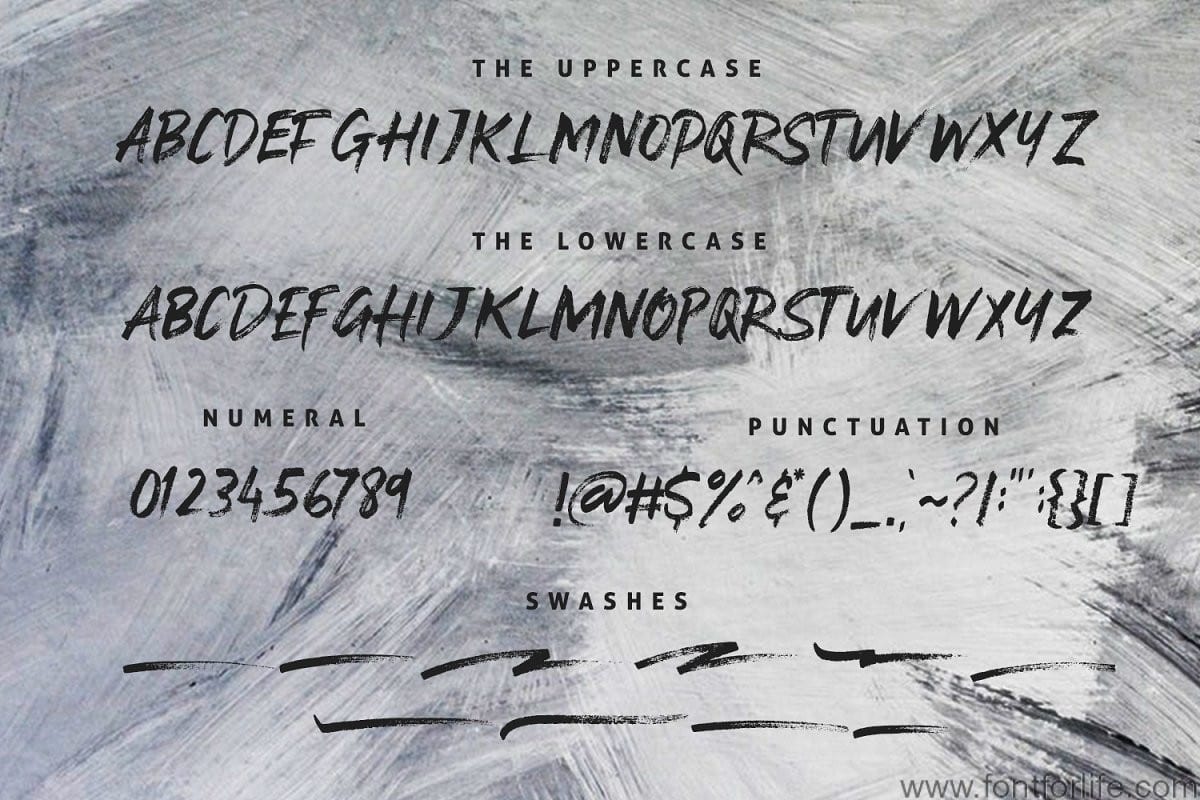 THE UPPERCASE
ABCDEFGHIJKLMNOPQRSTUVWXYZ
THE LOWERCASE
ABCDEFGHIJKLMNOPQRSTUVWXYZ
NUMERAL
0123456789
PUNCTUATION
!@#$%^&*()_.,`~?/|:"';{}[]
SWASHES
www.fontforlife.com